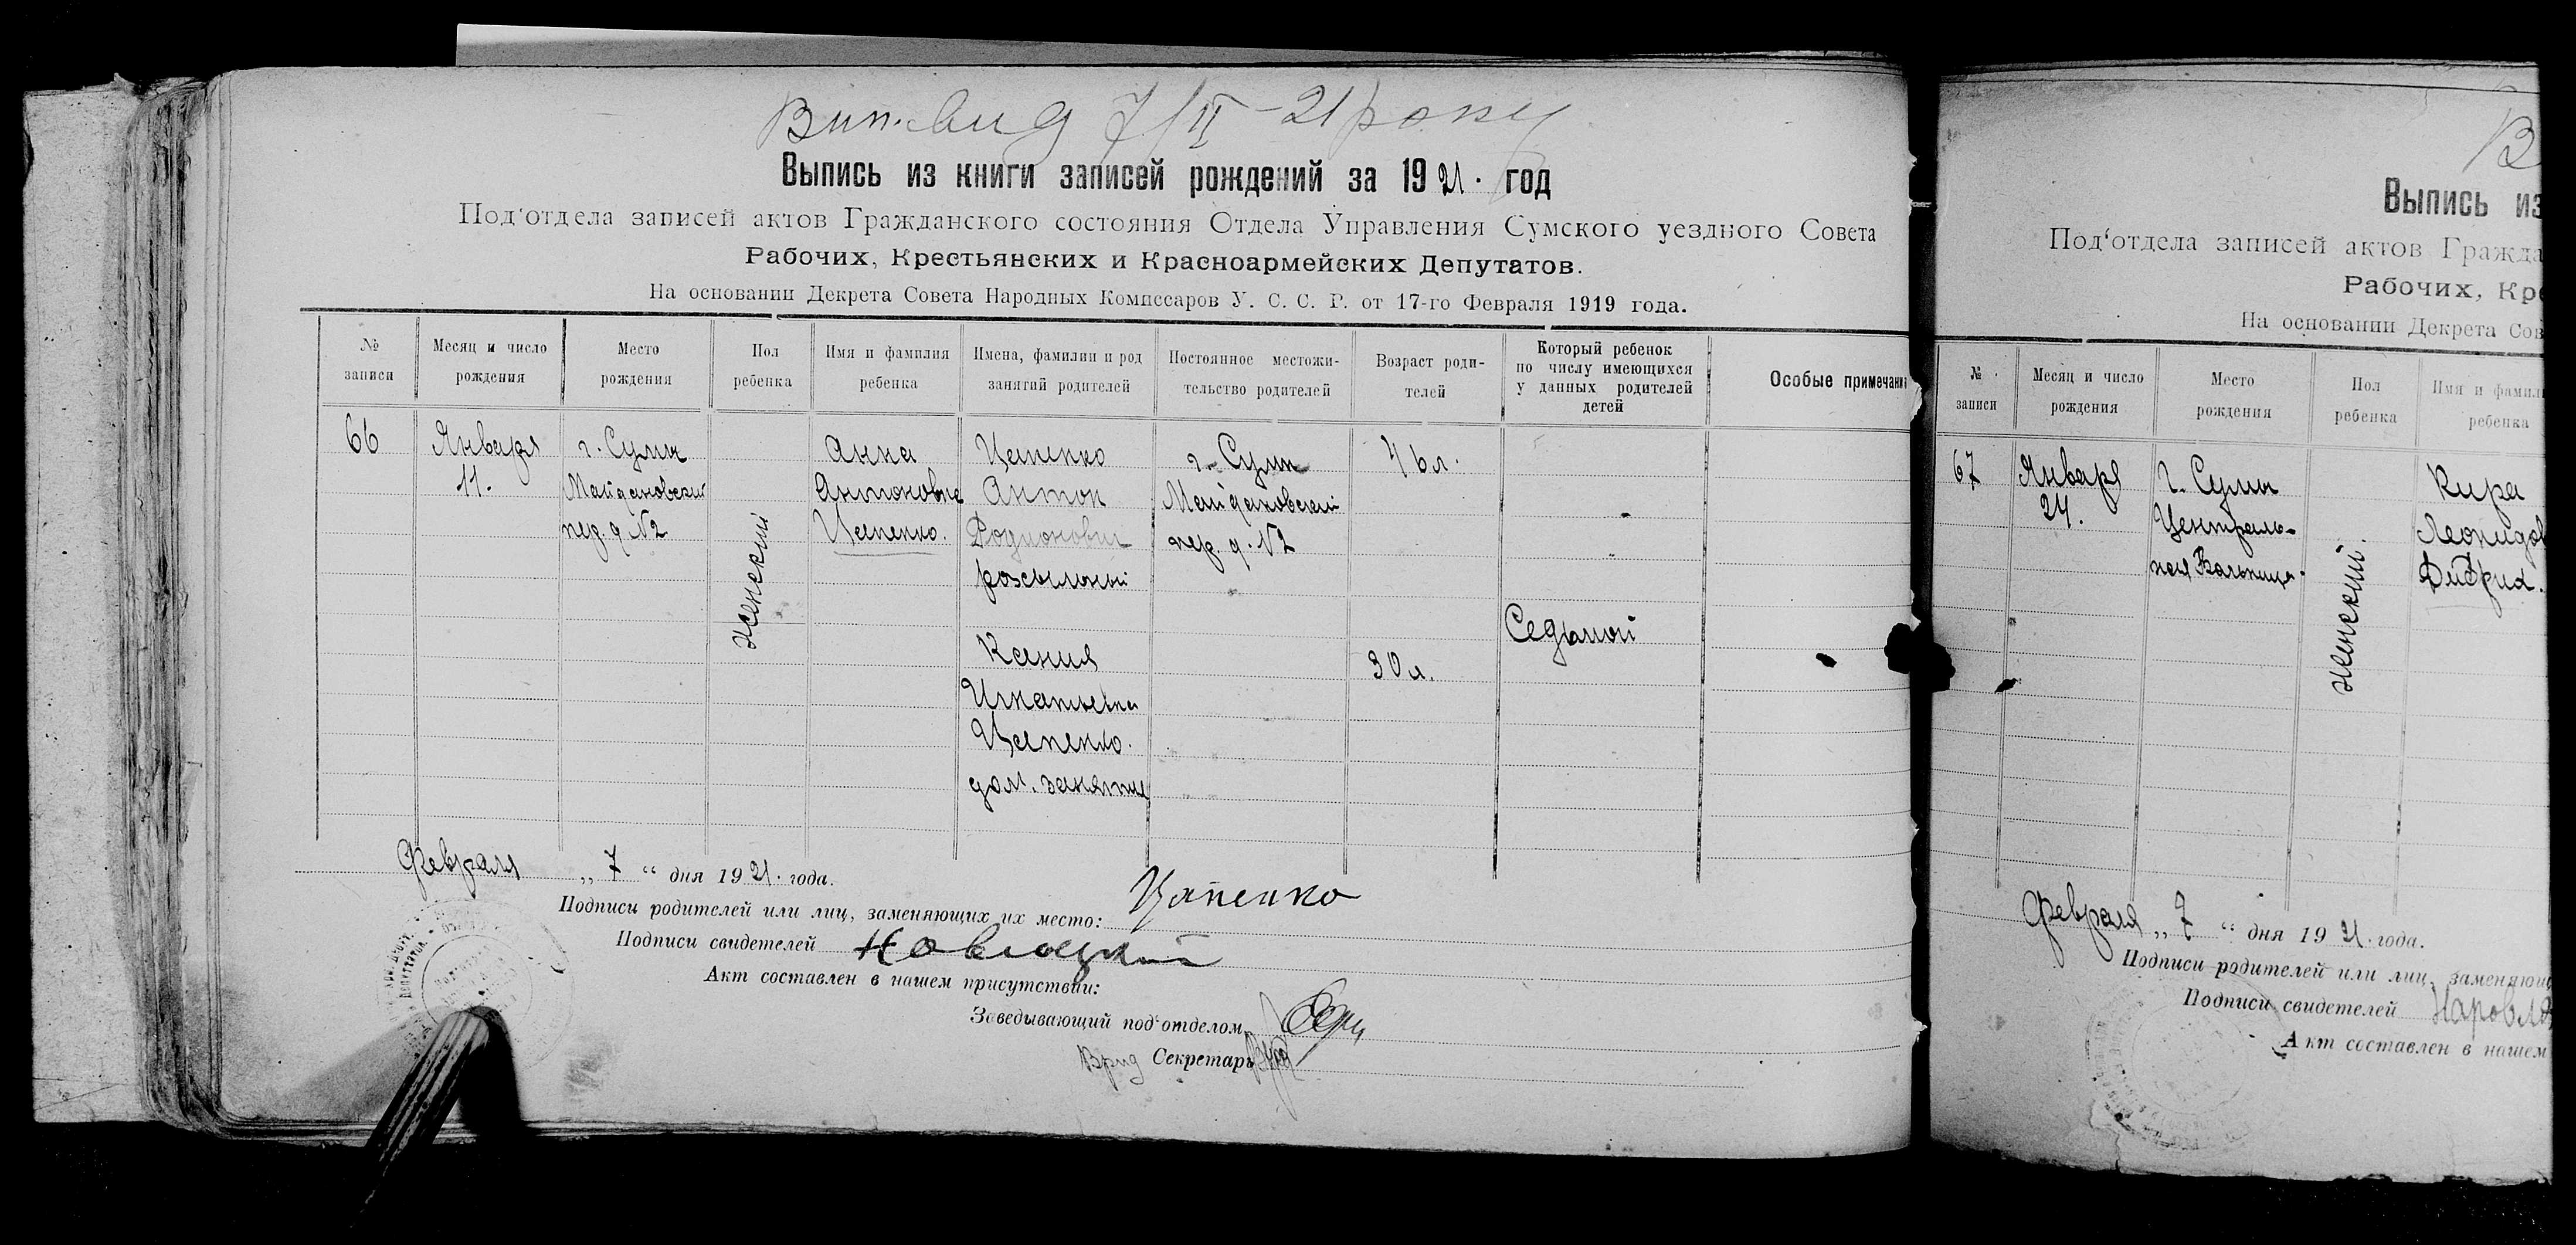 Вип. вид 7/II - 21 року
Выпись из книги записей рождений за 1921. год
Под'отдела записей актов Гражданского состояния Отдела Управления Сумского уездного Совета
Рабочих, Крестьянских и Красноармейских Депутатов.
На основании Декрета Совета Народных Комиссаров У. С. С. Р. от 17-го Февраля 1919 года.
№ записи
Месяц и число рождения
Место рождения
Пол ребенка
Имя и фамилия ребенка
Имена, фамилии и род занятий родителей
Постоянное местожительство родителей
Возраст родителей
Который ребенок по числу имеющихся у данных родителей детей
Особые примечани
66
Января
11.
г. Сумы
Майдановский
пер. д. №2
женский
Анна
Антоновна
Цапенко.
Цапенко
Антон
Родионович
розсыльный
Ксения
Игнатьевна
Цапенко.
дом. занятие
г. Сумы
Майдановский
пер. д. №2
46 л.
30 л.
Седьмой
Февраля „ 7 “ дня 1921. года.
Подписи родителей или лиц, заменяющих их место: Цапенко
Подписи свидетелей
Акт составлен в нашем присутствии:
Заведывающий под'отделом
Врид Секретарь
В
Выпись из
Под'отдела записей актов Гражда
Рабочих, Кре
На основании Декрета Сов
№ записи
Месяц и число рождения
Место рождения
Пол ребенка
Имя и фамил
ребенка
67
Января
24.
г. Сумы
Централь-
ная Больница.
женский.
Кира
Леонидов
Февраля „ 7 “ дня 1921. года.
Подписи родителей или лиц, заменяющ
Подписи свидетелей
Акт составлен в нашем